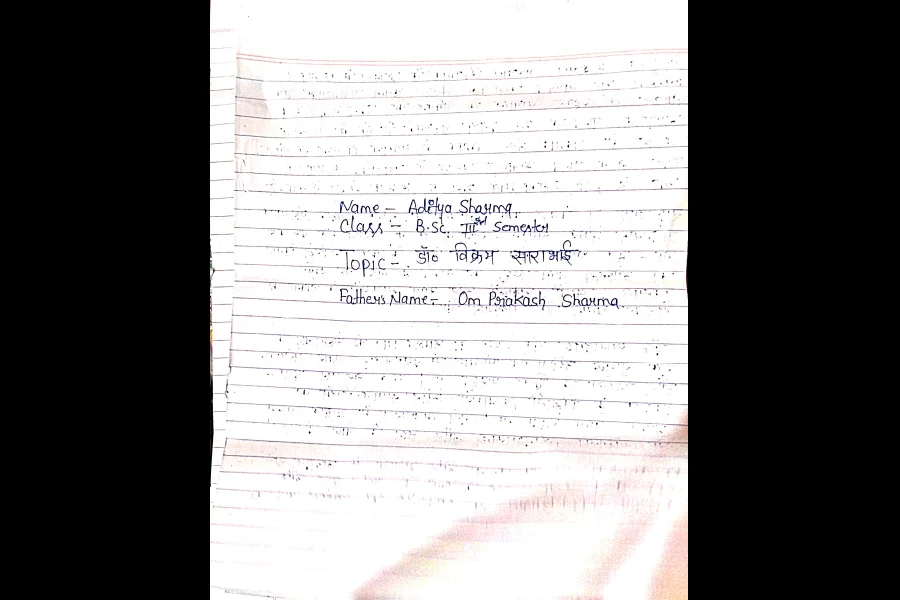 Name - Aditya Sharma
Class - B.Sc. IIIrd Semester
Topic - डॉ० विक्रम साराभाई
Father's Name - Om Prakash Sharma